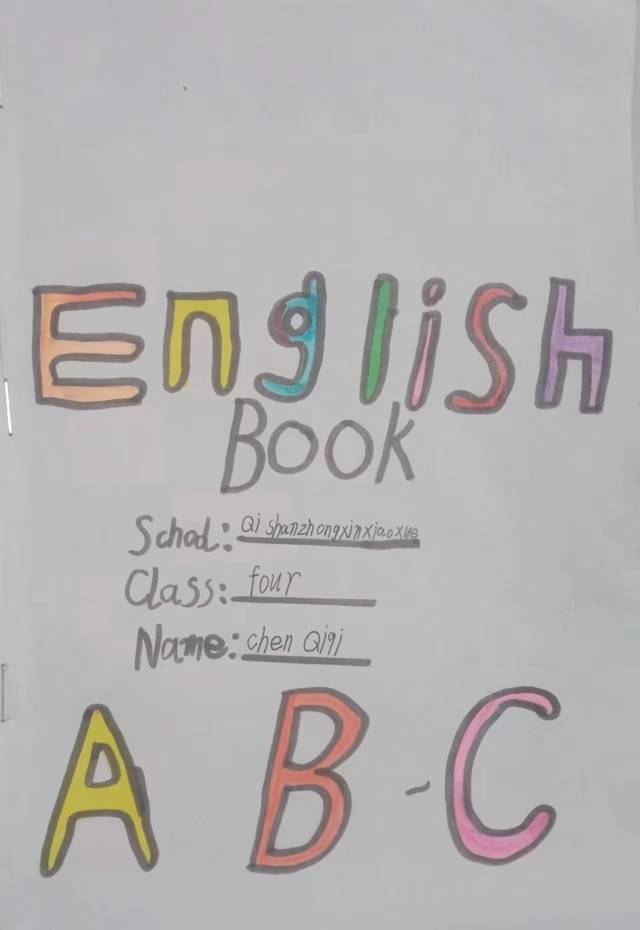 English
BOOK
School: Qi shanzhongxinxiaoxue
Class: four
Name: chen Qiqi
A B - C